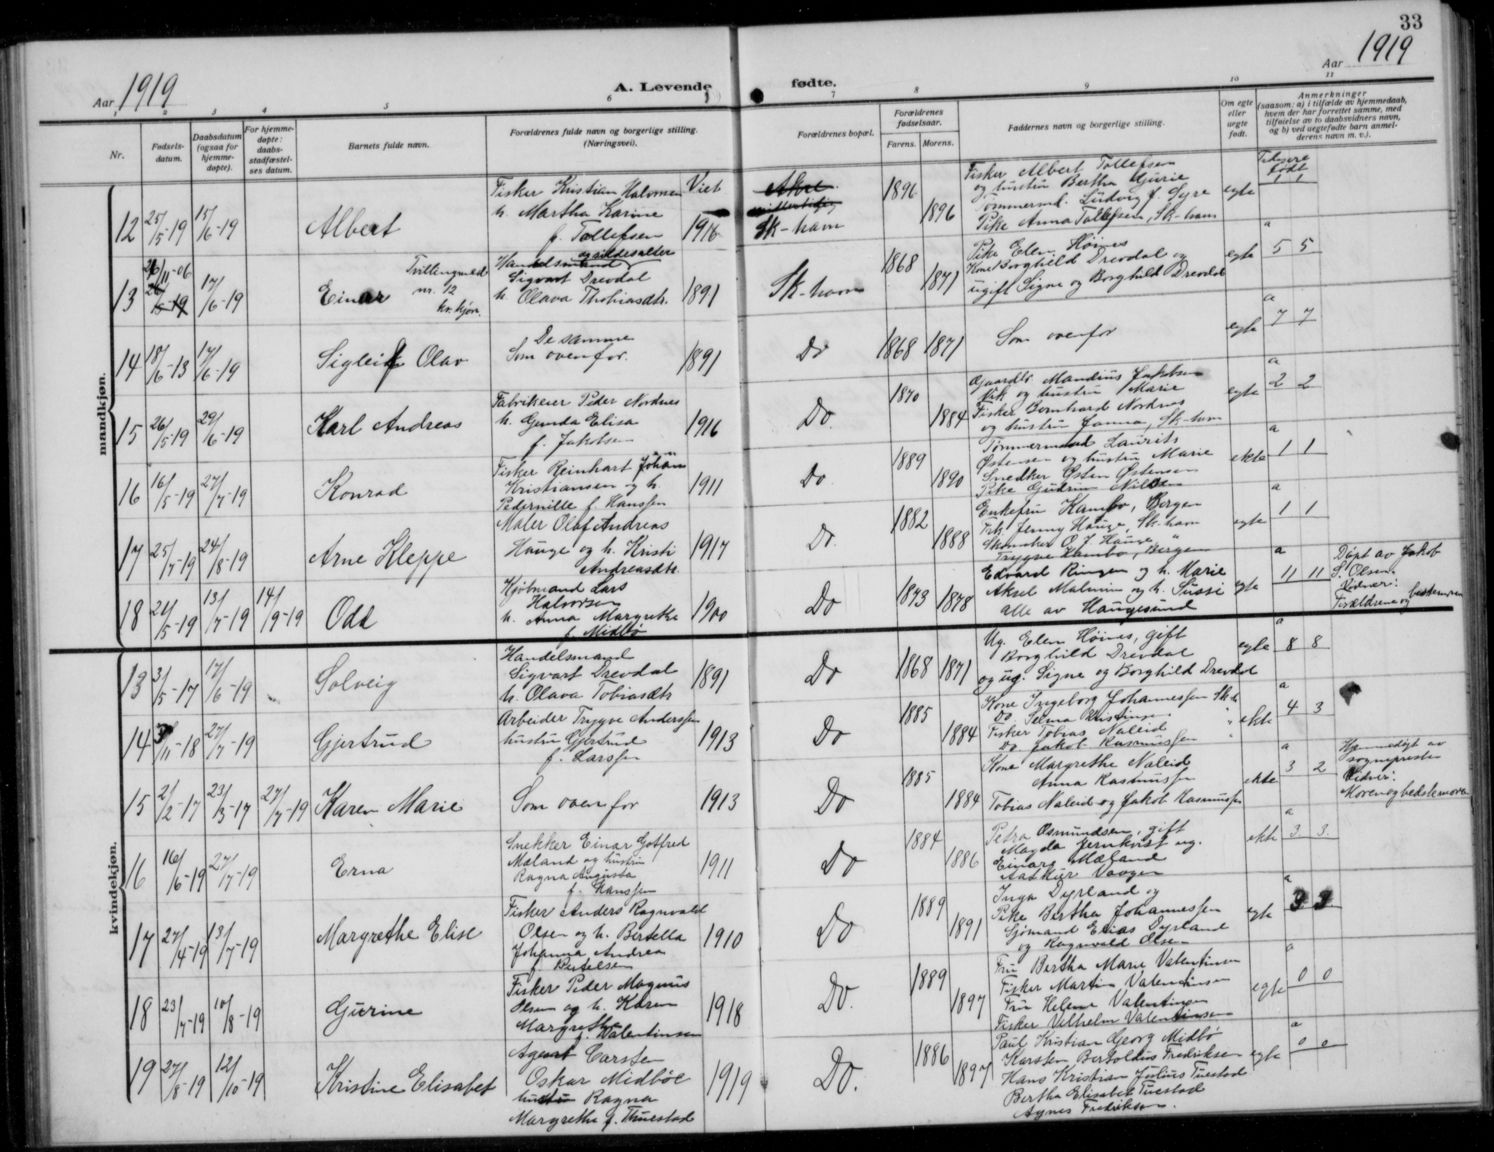 33
Aar 1919
A. Levende fødte.
Aar 1919
1 2 3 4 5 6 7 8 9 10 11
Nr.
Fødsels-
datum.
Daabsdatum
(ogsaa for
hjemme-
døpte).
For hjemme-
døpte:
daabs-
stadfæstel-
ses datum.
Barnets fulde navn.
Forældrenes fulde navn og borgerlige stilling.
(Næringsvei).
Forældrenes bopæl.
Forældrenes
fødselsaar.
Farens. Morens.
Faddernes navn og borgerlige stilling.
Om egte
eller
uegte
født.
Anmerkninger
(saasom: a) i tilfælde av hjemmedaab,
hvem der har forrettet samme, med
tilføielse av to daabsvidners navn,
og b) ved uegtefødte barn anmel-
derens navn m. v.).
mandkjøn.
Viet
Tidligere
født
12 25/5-19 15/6-19 Albert
Fisker Kristian Halvorsen
h. Martha Karine
f. Tollefsen
1918
Akre
Sk-havn
1896 1896
Fisker Albert Tollefsen
og hustru Bertha Gurie
Tømmermd. Ludvig J. Syre
Pike Anna Tollefsen, Sk-havn
egte 1 1
13 26/11-06 17/6-19 Einar
Tvillingmed
nr. 12
kv. kjøn.
Handelsmand
Sigvart Drevdal
h. Olava Thobiasdt.
1891
Sk-havn
1868 1871
Pike Elen Høines
Kone Borghild Drevdal og
ugift Signe og Borghild Drevdal
egte a 5 5
14 18/6-13 17/6-19 Sigleif Olav
De samme
Som ovenfor.
1891
Do
1868 1871
Som ovenfor
egte a 7 7
15 26/5-19 29/6-19 Karl Andreas
Fabrikeier Peder Nordnes
h. Gunda Elisa
f. Jakobsen
1916
Do
1870 1884
Gaardbr. Mandius Jakobsen
Vik og hustru Marie
Fisker Bernhard Nordnes
og hustru Janna, Sk-havn
egte a 2 2
16 16/5-19 27/7-19 Konrad
Fisker Reinhart Johan
Kristiansen og h.
Pedernille f. Hanssen
1911
Do
1889 1890
Tømmermand Laurits
Østensen og hustru Marie
Snedker Østen Østensen
Pike Gudrun Nilsen
ekte a 1 1
17 25/7-19 24/8-19 Arne Kleppe
Maler Olaf Andreas
Hauge og h. Kristi
Andreasdt.
1917
Do.
1882 1888
Enkefru Kambo, Bergen
Frk. Jenny Hauge, Sk.havn
O. J. Hauge, "
Trygve Kambo, Bergen
egte a 1 1
18 21/5-19 13/7-19 14/9-19 Odd
Kjøbmand Lars
Halvorsen
h. Anna Margrethe
f. Midbø
1900
Do
1873 1878
Edvard Ringen og h. Marie
Aksel Malmin og h. Sussi
alle av Haugesund
egte a 11 11
Døpt av Jakob
S. Olsen.
Vidner:
Forældrene og bestemoren
kvindekjøn.
13 3/5-17 17/6-19 Solveig
Handelsmand
Sigvart Drevdal
h. Olava Tobiasdtr
1891
Do
1868 1871
Ug. Elen Høines, gift
Borghild Drevdal
og ug. Signe og Borghild Drevdal
egte a 8 8
14 3/11-18 27/7-19 Gjertrud
Arbeider Trygve Anderssen
hustru Gjertrud
f. Larssen
1913
Do
1885 1884
Kone Ingeborg Johannessen Sk-h
Do. Selma Kristiansen
Fisker Tobias Naleid
Do Jakob Rasmussen
ekte a 4 3
15 2/2-17 23/3-17 27/7-19 Karen Marie
Som ovenfor
1913
Do
1885 1884
Kone Margrethe Naleid
Anna Rasmussen
Tobias Naleid og Jakob Rasmussen
ekte a 3 2
Hjemmedøpt av
sognepresten
Vidner:
Moren og bedstemoren
16 16/6-19 27/7-19 Erna
Snekker Einar Gotfred
Mæland og hustru
Ragna Augusta
f. Hanssen
1911
Do
1884 1886
Petra Osmundsen, gift
Magda Jernkvist ug.
Einars Mæland
Vaagen
ekte a 3 3
17 27/4-19 13/7-19 Margrethe Elise
Fisker Anders Ragnvald
Olsen og h. Bertella
Johanna Andrea
f. Bertelsen
1910
Do
1889 1891
Inga Dyrland og
Pike Bertha Johannessen
Sjømand Elias Dyrland
og Ragnvald Olsen
egte a 3 3
18 23/7-19 10/8-19 Gurine
Fisker Peder Magnus
Olsen og h. Karen
Margrethe f. Valentinsen
1918
Do.
1889 1897
Fru Bertha Marie Valentinsen
Fisker Martin Valentinsen
Fru Helene Valentinsen
Fisker Vilhelm Valentinsen
egte a 0 0
19 27/8-19 12/10-19 Kristine Elisabet
Agent Carsten
Oskar Midbøe
hustru Ragna
Margrethe f. Thuestad
1919
Do.
1886 1897
Paul Kristian Georg Midbø
Karsten Bertoldius Fredriksen
Hans Kristian Julius Tuestad
Bertha Elisabet Tuestad
Agnes Fredriksen.
egte a 0 0